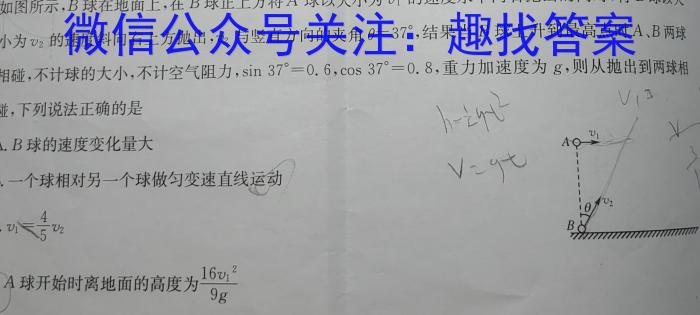 如图所示,B球在地面上,在B球正上方将A球以大小为
微信公众号关注：趣找答案
小为v₂的速度斜向右上方抛出,v₂与竖直方向的夹角θ=37°,结果 A、B两球
相碰,不计球的大小,不计空气阻力,sin 37°=0.6,cos 37°=0.8,重力加速度为g,则从抛出到两球相
碰,下列说法正确的是
.B球的速度变化量大
.一个球相对另一个球做匀变速直线运动
v₁=4/5 v₂
A球开始时离地面的高度为16v₁²/9g
h=½gt²
V=gt
A v₁
θ v₂
B